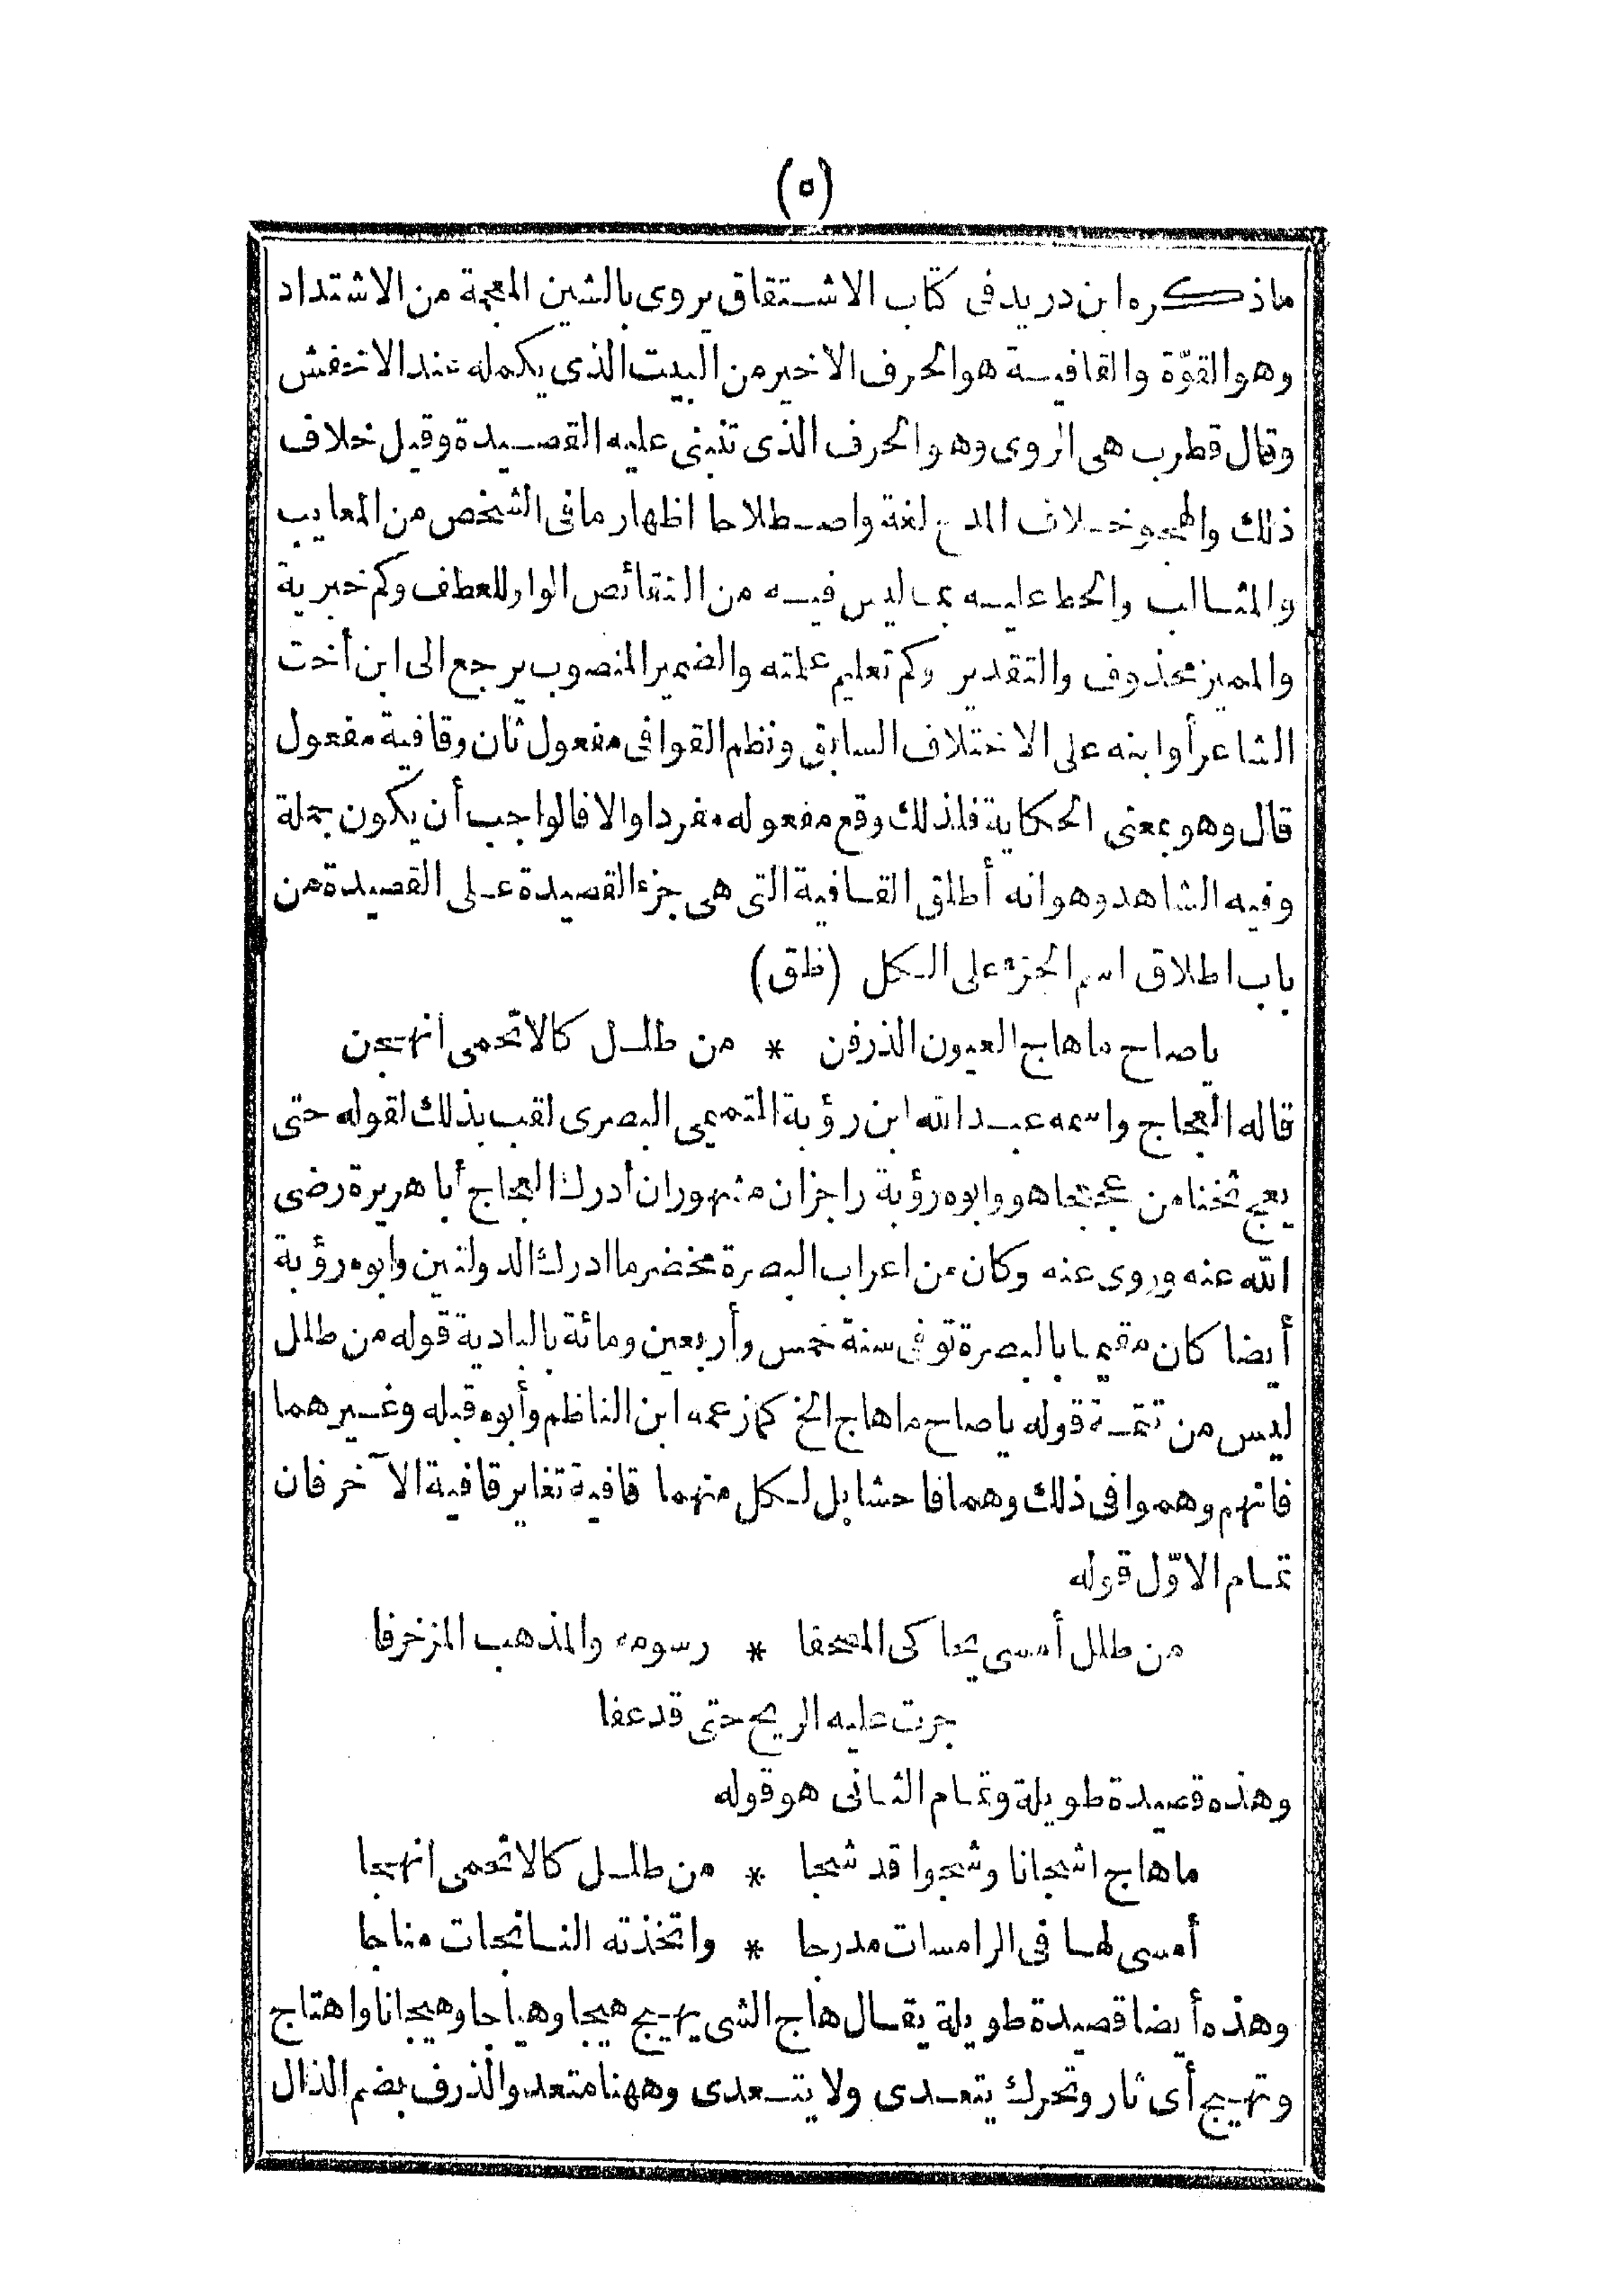 (٥)
ماذكره ابن دريد فى كتاب الاشتقاق يروى بالشين المعجمة من الاشتداد
وهو القوّة والقافية هو الحرف الاخير من البيت الذى يكمله عند الاخفش
وقال قطرب هى الروى وهو الحرف الذى تنبنى عليه القصيدة وقيل خلاف
ذلك والهجو خلاف المدح لغة واصطلاحا اظهار مافى الشخص من المعايب
والمثالب والحط عليه بما ليس فيه من النقائص الواو للعطف وكم خبرية
والمميز محذوف والتقدير وكم تعليم علمته والضمير المنصوب يرجع الى ابن أخت
الشاعر أو ابنه على الاختلاف السابق ونظم القوافى مفعول ثان وقافية مفعول
قال وهو بمعنى الحكاية فلذلك وقع مفعوله مفردا والا فالواجب أن يكون جملة
وفيه الشاهد وهو انه أطلق القافية التى هى جزء القصيدة على القصيدة من
باب اطلاق اسم الجزء على الكل (ظق)
ياصاح ما هاج العيون الذرفن * من طلل كالاتحمى انهجن
قاله العجاج واسمه عبد الله ابن رؤبة التميمى البصرى لقب بذلك لقوله حتى
يعج ثخنا من عججا هو وابوه رؤبة راجزان مشهوران أدرك العجاج أبا هريرة رضى
الله عنه وروى عنه وكان من اعراب البصرة مخضرما ادرك الدولتين وابوه رؤبة
أيضا كان مقيما بالبصرة توفى سنة خمس وأربعين ومائة بالبادية قوله من طلل
ليس من تتمة قوله ياصاح ما هاج الخ كما زعمه ابن الناظم وأبوه قبله وغيرهما
فانهم وهموا فى ذلك وهما فاحشا بل لكل منهما قافية تغاير قافية الآخر فان
تمام الاوّل قوله
من طلل أمسى يحاكى المصحفا * رسومه والمذهب المزخرفا
جرت عليه الريح حتى قد عفا
وهذه قصيدة طويلة وتمام الثانى هو قوله
ما هاج اشجانا وشجوا قد شجا * من طلل كالاتحمى انهجا
أمسى لها فى الرامسات مدرجا * واتخذته النائجات مناجا
وهذه أيضا قصيدة طويلة يقال هاج الشى يهيج هيجا وهياجا وهيجانا واهتاج
وتهيج أى ثار وتحرك يتعدى ولا يتعدى وههنا متعد والذرف بضم الذال